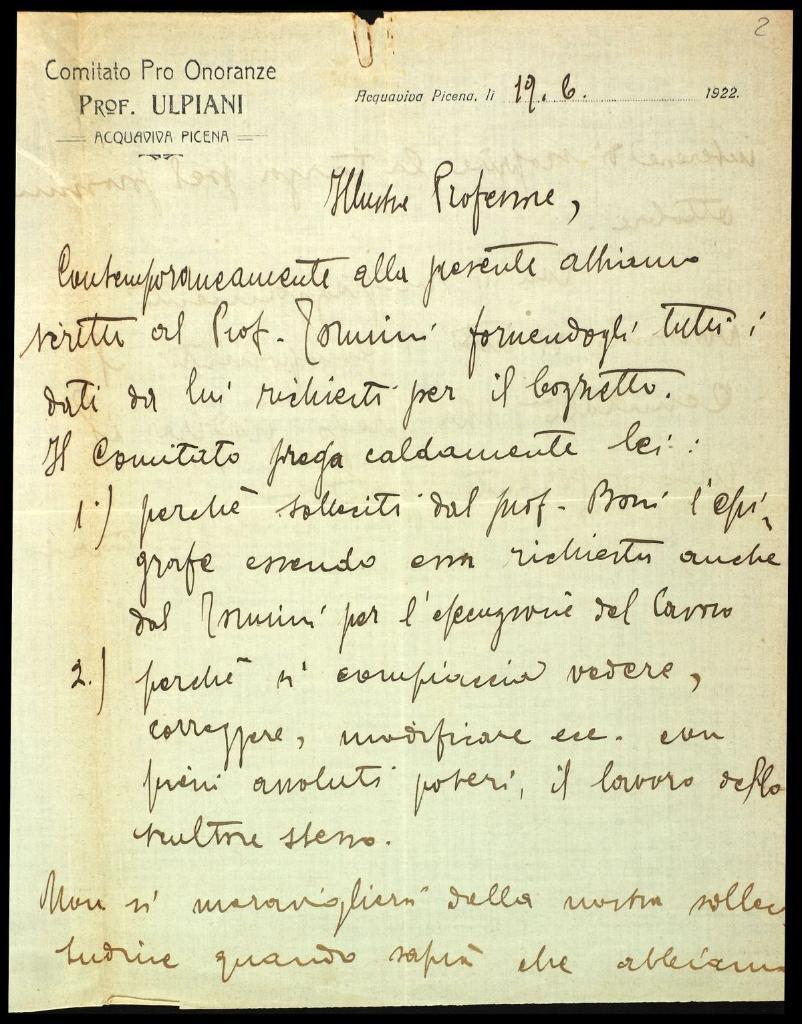 2
Comitato Pro Onoranze
PROF. ULPIANI
ACQUAVIVA PICENA
Acquaviva Picena, lì 19.6. 1922.
Illustre Professore,
Contemporaneamente alla presente abbiamo
scritto al Prof. Zonnini fornendogli tutti i
dati da lui richiesti per il bozzetto.
Il Comitato prega caldamente lei:
1.) perchè solleciti dal prof. Boni l'epi-
grafe essendo essa richiesta anche
dal per l'esecuzione del lavoro
2.) perchè si compiaccia vedere,
correggere, modificare ecc. con
pieni assoluti poteri, il lavoro dello
scultore stesso.
Non si meraviglierà della nostra solleci
tudine quando saprà che abbiamo